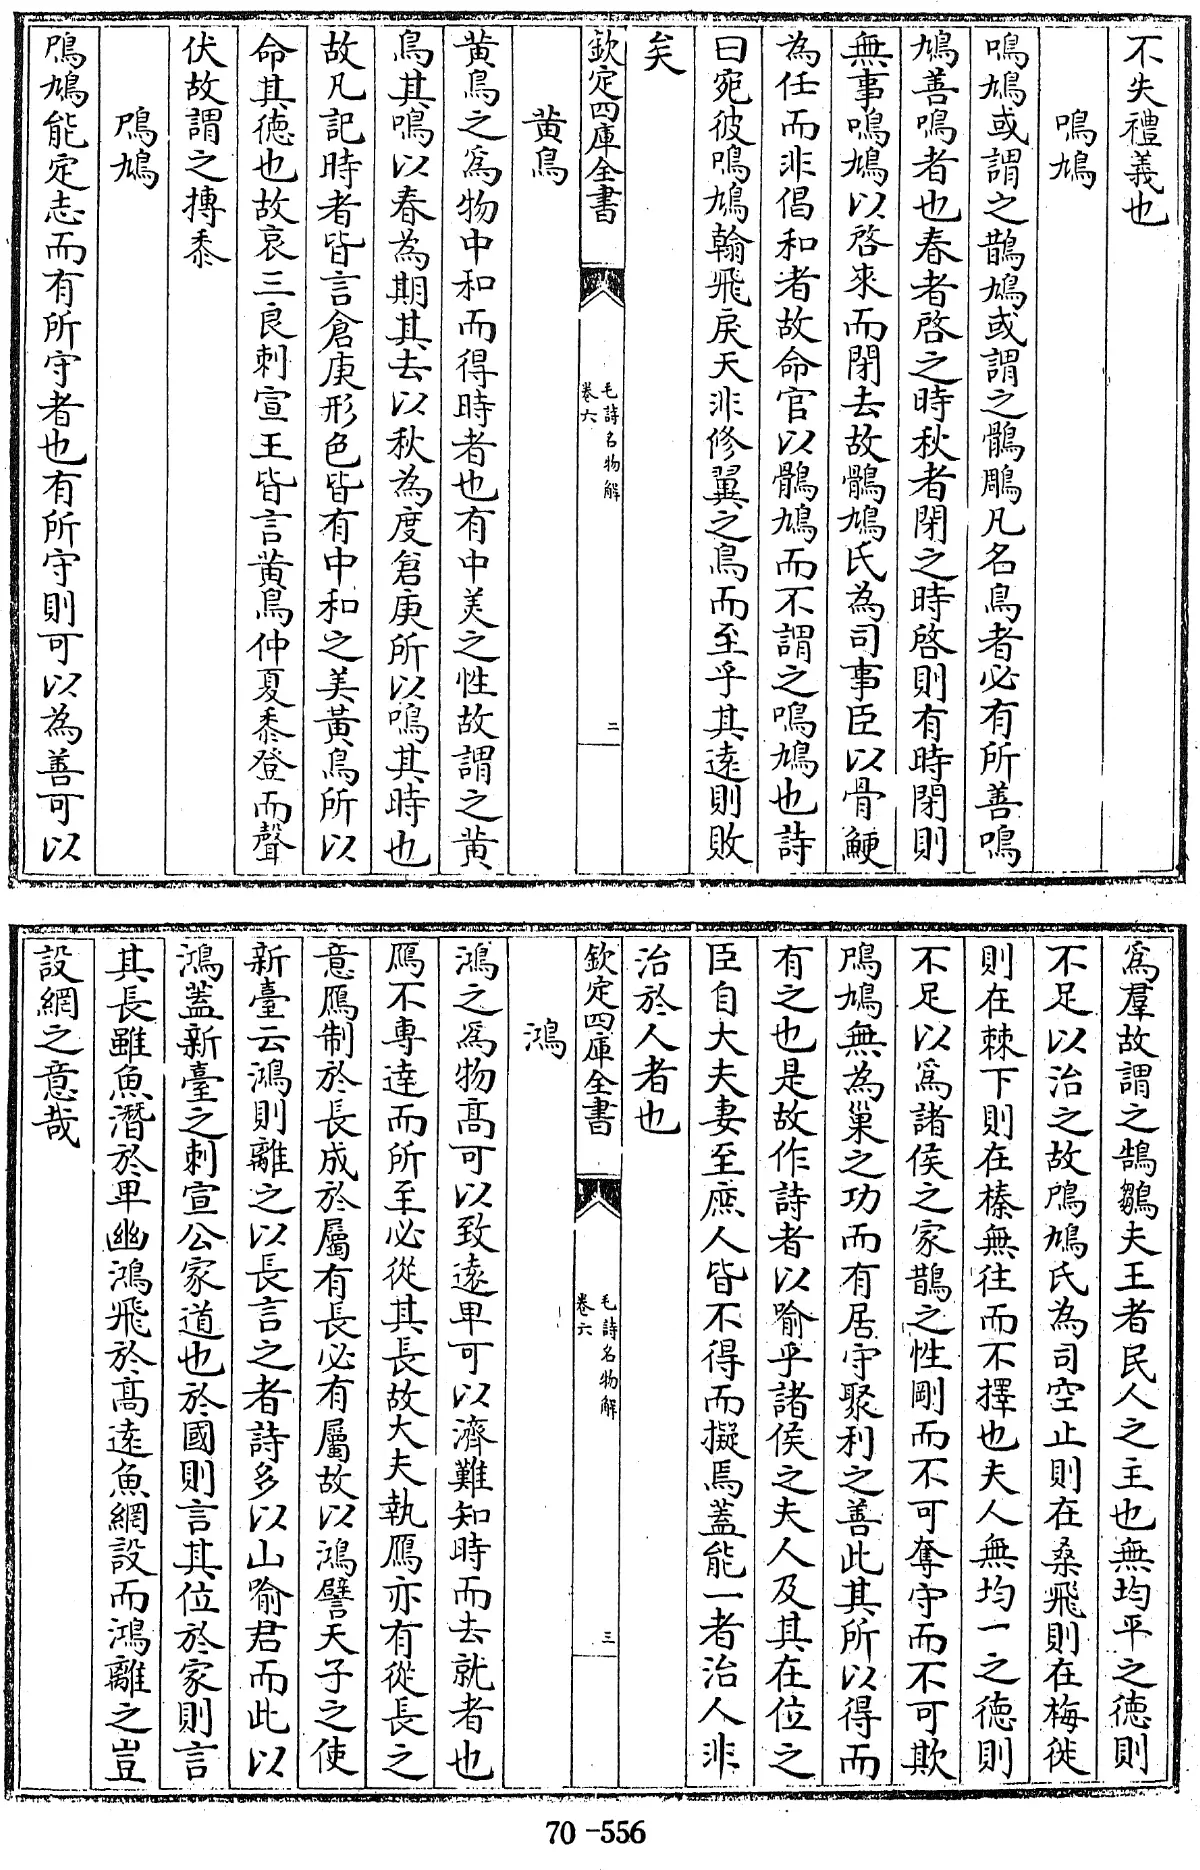 不失禮義也
鳴鳩
鳴鳩或謂之鵲鳩或謂之鶻鵰凡名鳥者必有所善鳴
鳩善鳴者也春者啓之時秋者閉之時啓則有時閉則
無事鳴鳩以啓來而閉去故鶻鳩氏為司事臣以骨鯁
為任而非倡和者故命官以鶻鳩而不謂之鳴鳩也詩
曰宛彼鳴鳩翰飛戾天非修翼之鳥而至乎其遠則敗
矣
欽定四庫全書
毛詩名物解
卷六
二
黄鳥
黄鳥之為物中和而得時者也有中美之性故謂之黄
鳥其鳴以春為期其去以秋為度倉庚所以鳴其時也
故凡記時者皆言倉庚形色皆有中和之美黄鳥所以
命其徳也故哀三良刺宣王皆言黄鳥仲夏黍登而聲
伏故謂之摶黍
鳲鳩
鳲鳩能定志而有所守者也有所守則可以為善可以
為羣故謂之鵠鶵夫王者民人之主也無均平之徳則
不足以治之故鳲鳩氏為司空止則在桑飛則在梅徙
則在棘下則在榛無往而不擇也夫人無均一之徳則
不足以為諸侯之家鵲之性剛而不可奪守而不可欺
鳲鳩無為巢之功而有居守聚利之善此其所以得而
有之也是故作詩者以喻乎諸侯之夫人及其在位之
臣自大夫妻至庶人皆不得而擬焉蓋能一者治人非
治於人者也
欽定四庫全書
毛詩名物解
卷六
三
鴻
鴻之為物髙可以致遠卑可以濟難知時而去就者也
鴈不專逹而所至必從其長故大夫執鴈亦有從長之
意鴈制於長成於屬有長必有屬故以鴻譬天子之使
新臺云鴻則離之以長言之者詩多以山喻君而此以
鴻蓋新臺之刺宣公家道也於國則言其位於家則言
其長雖魚潛於卑幽鴻飛於髙遠魚網設而鴻離之豈
設網之意哉
70-556